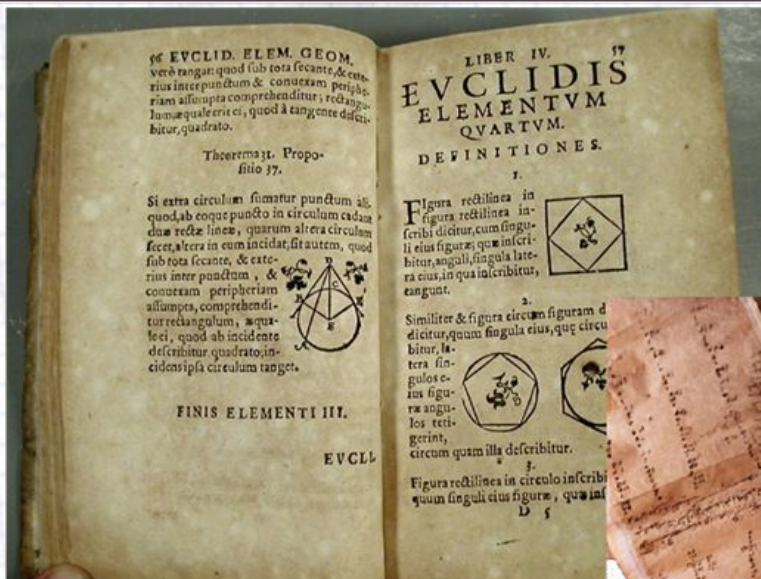 56 EVCLID. ELEM. GEOM.
verò tangat: quod sub tota secante, & exte-
rius inter punctum & conuexam periphe-
riam assumpta comprehenditur; rectangu-
lum, æquale erit ei, quod à tangente descri-
bitur, quadrato.
Theorema 31. Propo-
sitio 37.
Si extra circulum sumatur punctum ali-
quod, ab eoque puncto in circulum cadant
duæ rectæ lineæ, quarum altera circulum
secet, altera in eum incidat; sit autem, quod
sub tota secante, & exte-
rius inter punctum, &
conuexam peripheriam
assumpta, comprehendi-
tur rectangulum, æqua-
le ei, quod ab incidente
describitur quadrato; in-
cidens ipsa circulum tanget.
D
C
B
E
A
FINIS ELEMENTI III.
EVCLI
LIBER IV. 57
EVCLIDIS
ELEMENTVM
QVARTVM.
DEFINITIONES.
1.
FIgura rectilinea in
figura rectilinea in-
scribi dicitur, cum singu-
li eius figuræ; quæ inscri-
bitur, anguli, singula late-
ra eius, in qua inscribitur,
tangunt.
2.
Similiter & figura circum figuram d
dicitur, quum singula eius, quę circu
bitur, la-
tera sin-
gulos e-
ius figu-
ræ angu-
los teti-
gerint,
circum quam illa describitur.
3.
Figura rectilinea in circulo inscribi
quum singuli eius figuræ, quæ ins
D 5